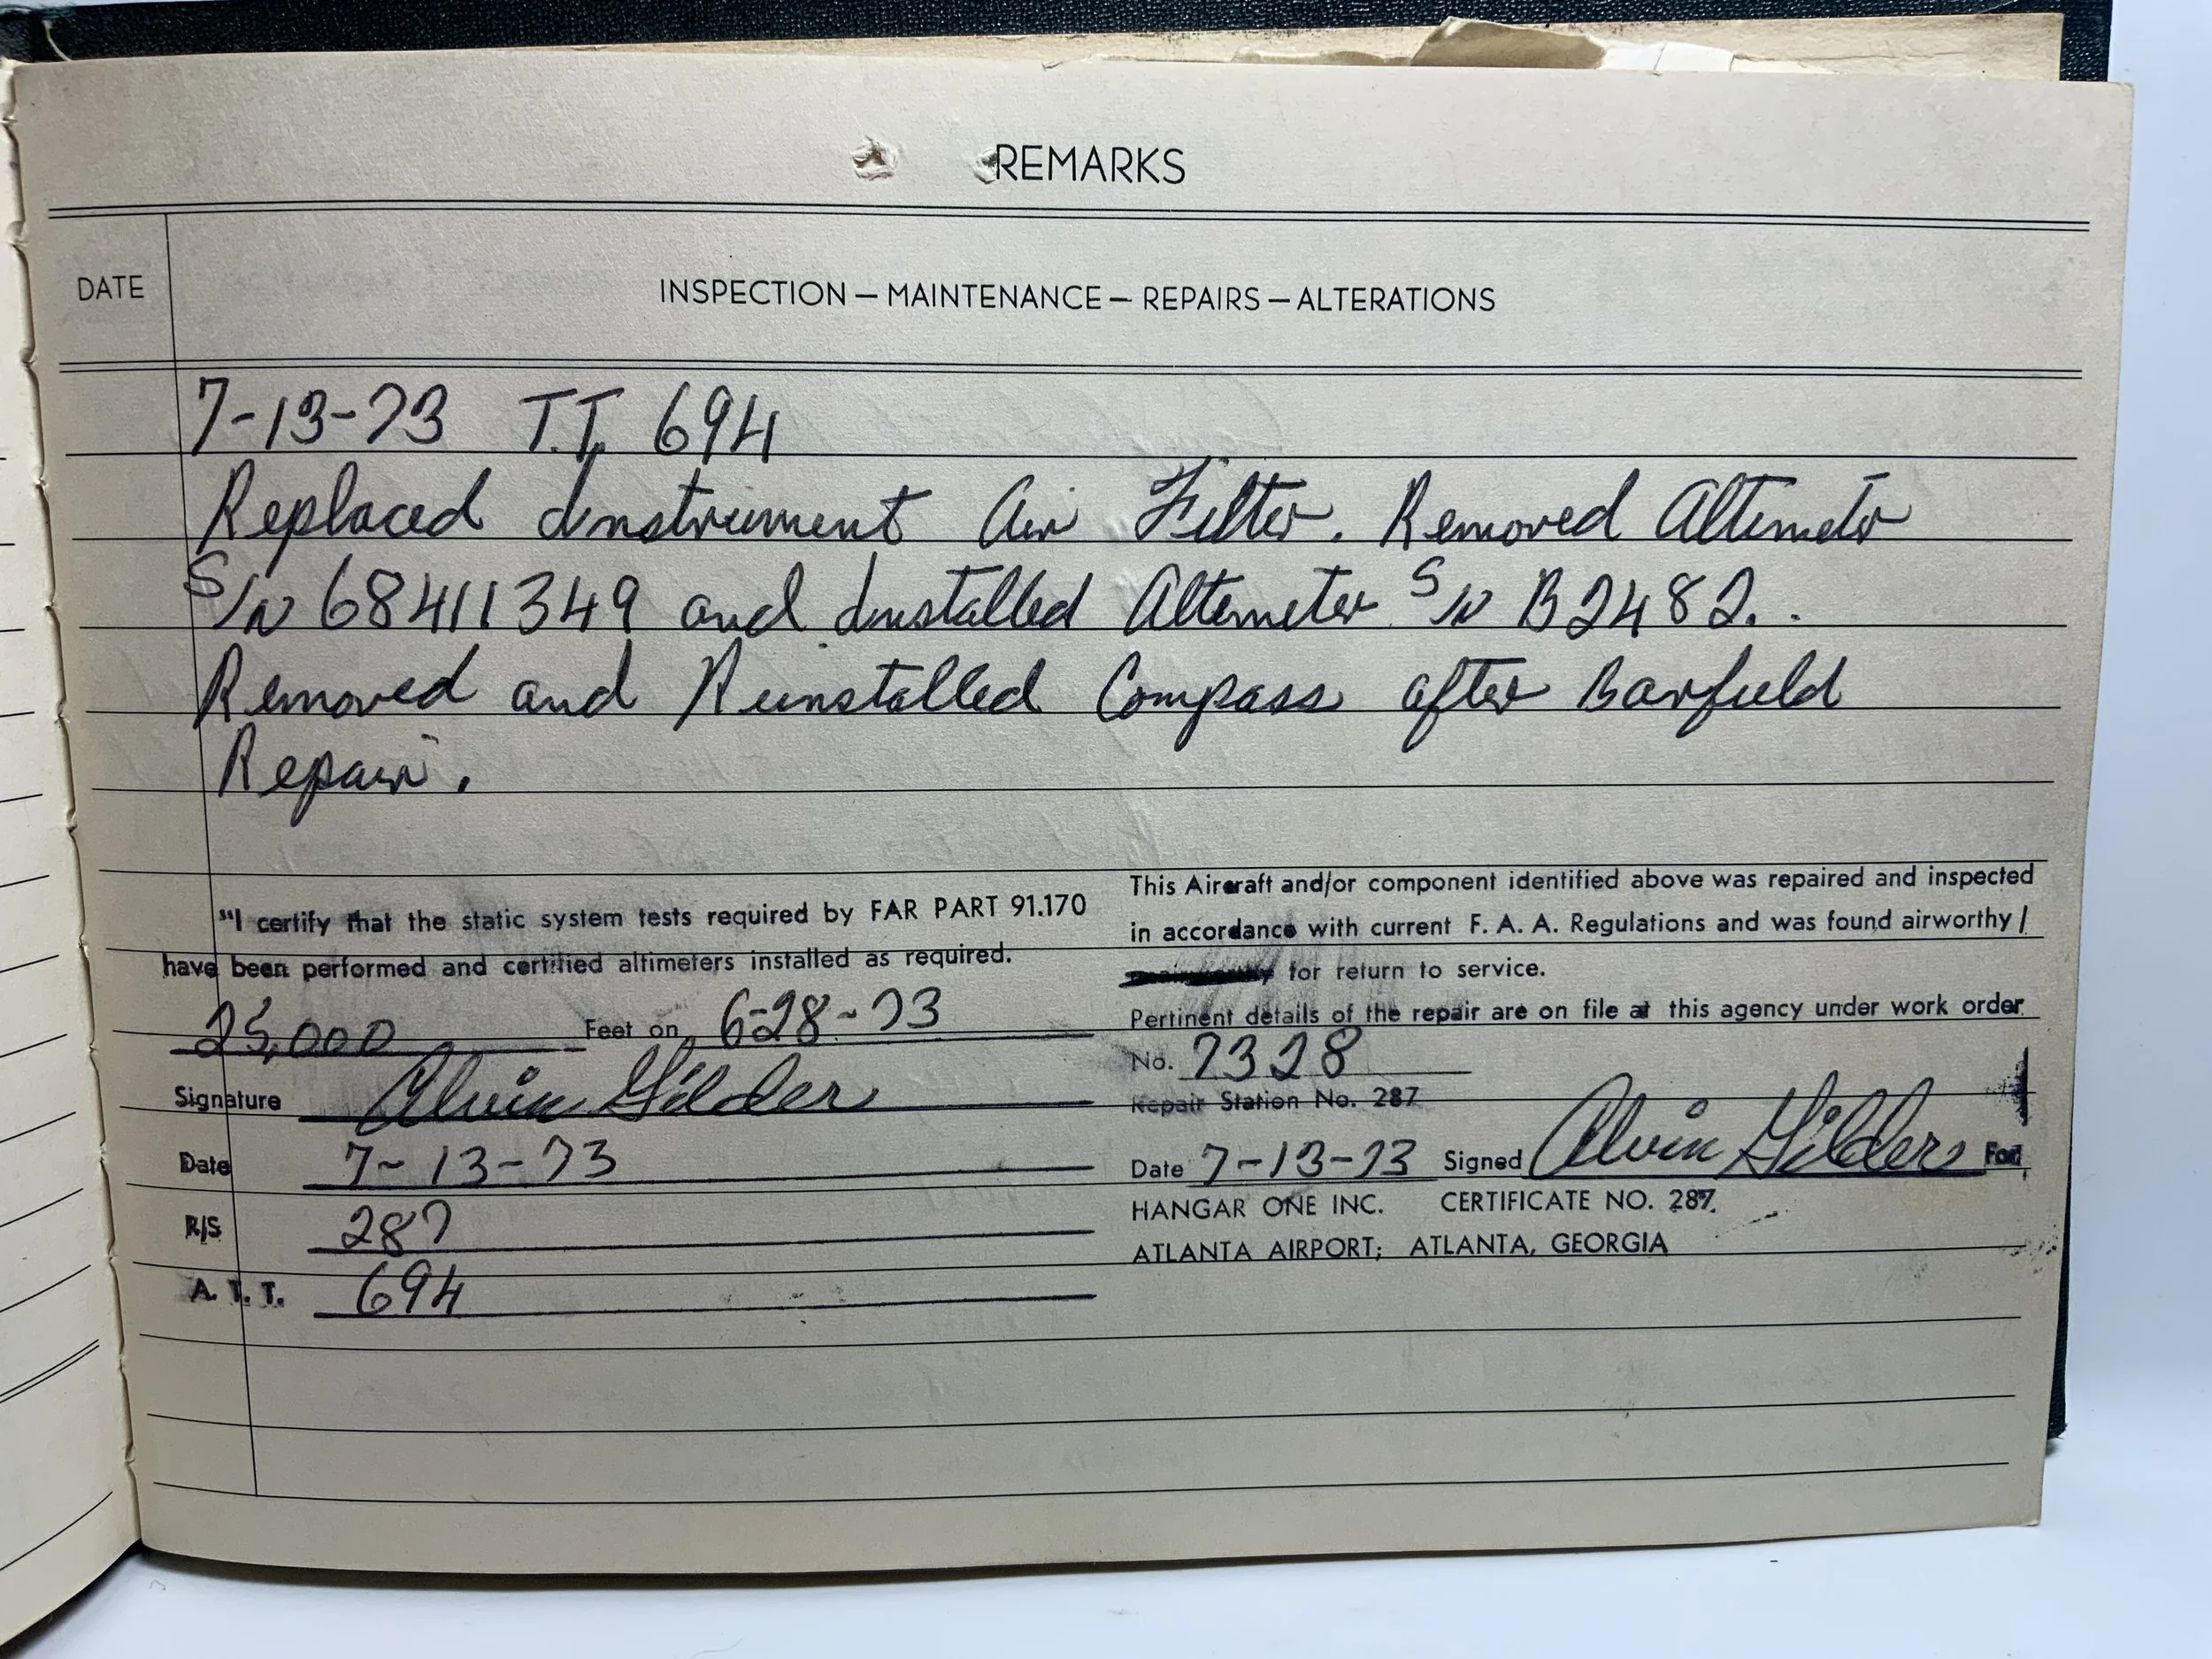 REMARKS
DATE
INSPECTION — MAINTENANCE — REPAIRS — ALTERATIONS
7-13-73 T.T. 694
Replaced Instrument Air Filter. Removed Altimeter
S/N 68411349 and Installed Altimeter S/N B2482..
Removed and Reinstalled Compass after Barfield
Repair.
"I certify that the static system tests required by FAR PART 91.170
have been performed and certified altimeters installed as required.
25,000 Feet on 6-28-73
Signature Alvin Gilder
Date 7-13-73
R/S 287
A. T. T. 694
This Aircraft and/or component identified above was repaired and inspected
in accordance with current F. A. A. Regulations and was found airworthy/
for return to service.
Pertinent details of the repair are on file at this agency under work order
No. 7328
Repair Station No. 287
Date 7-13-73 Signed Alvin Gilder For
HANGAR ONE INC. CERTIFICATE NO. 287.
ATLANTA AIRPORT; ATLANTA, GEORGIA